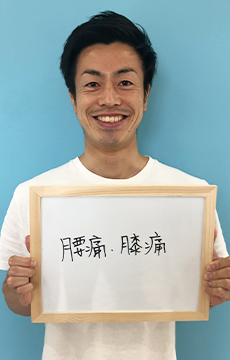 腰痛・膝痛